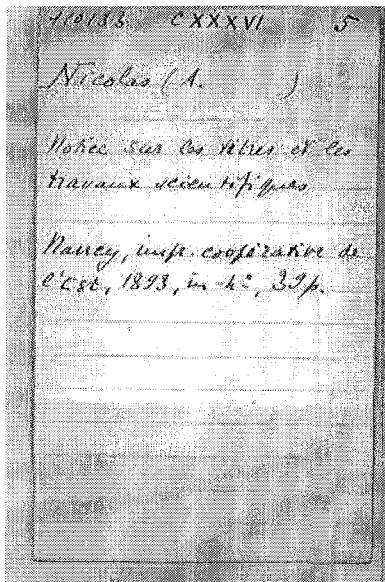 110133 CXXXVI 5
Nicolas (A. )
Notice sur les titres et les
travaux scientifiques
Nancy, imp. coopérative de
l'Est, 1893, in-4°, 39 p.